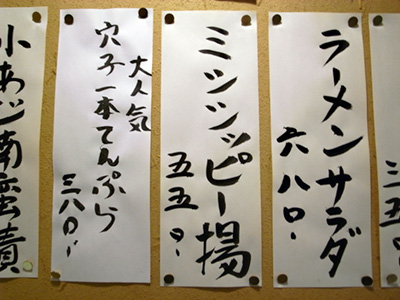 三五〇、
ラーメンサラダ
六八〇、
ミシシッピー揚
五五〇、
大人気
穴子一本てんぷら
三八〇、
小あじ南蛮漬